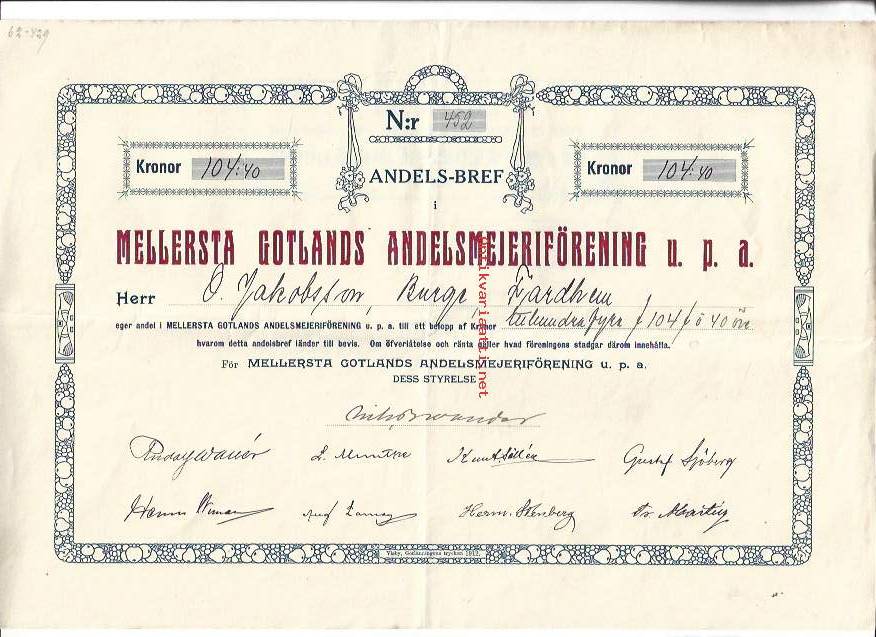 62-429
N:r 452
ANDELS-BREF
Kronor 104:40
Kronor 104:40
i
MELLERSTA GOTLANDS ANDELSMEJERIFÖRENING u. p. a.
Herr O. Jakobsson, Burge, Fardhem
eger andel i MELLERSTA GOTLANDS ANDELSMEJERIFÖRENING u. p. a. till ett belopp af Kronor 104 40 öre
hvarom detta andelsbref länder till bevis. Om öfverlåtelse och ränta gäller hvad föreningens stadgar därom innehålla.
För MELLERSTA GOTLANDS ANDELSMEJERIFÖRENING u. p. a.
DESS STYRELSE
L. Munthe Knut Gustaf Sjöberg
Hanna Wiman Herm. Stenberg
Visby, Gotlänningens tryckeri 1912.
antikvariaatti.net